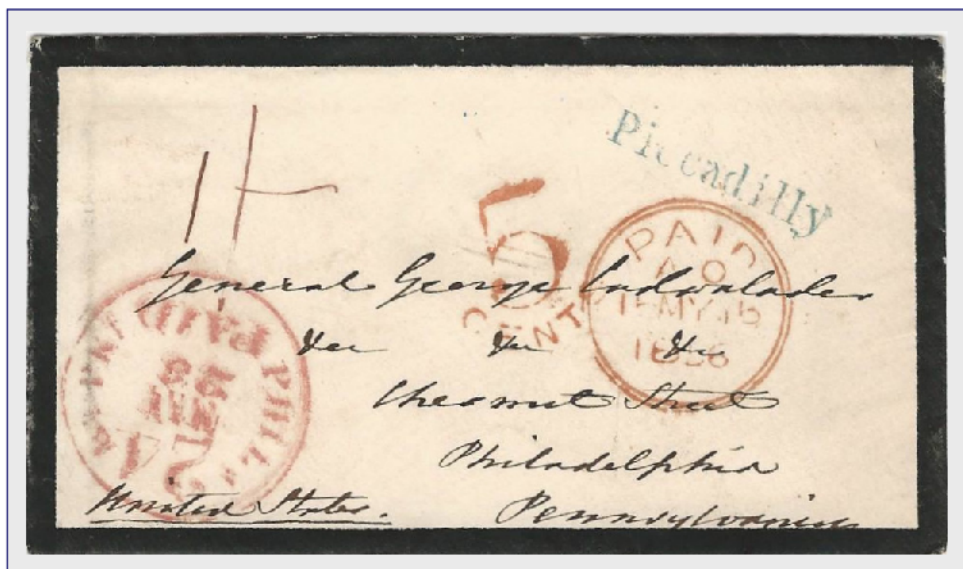 Piccadilly
1/-
5
CENTS
PAID
15 MY 15
1856
General George Cadwalader
&c &c &c
Chesnut Street
Philadelphia
Pennsylvania
United States.
PHIL
PAID